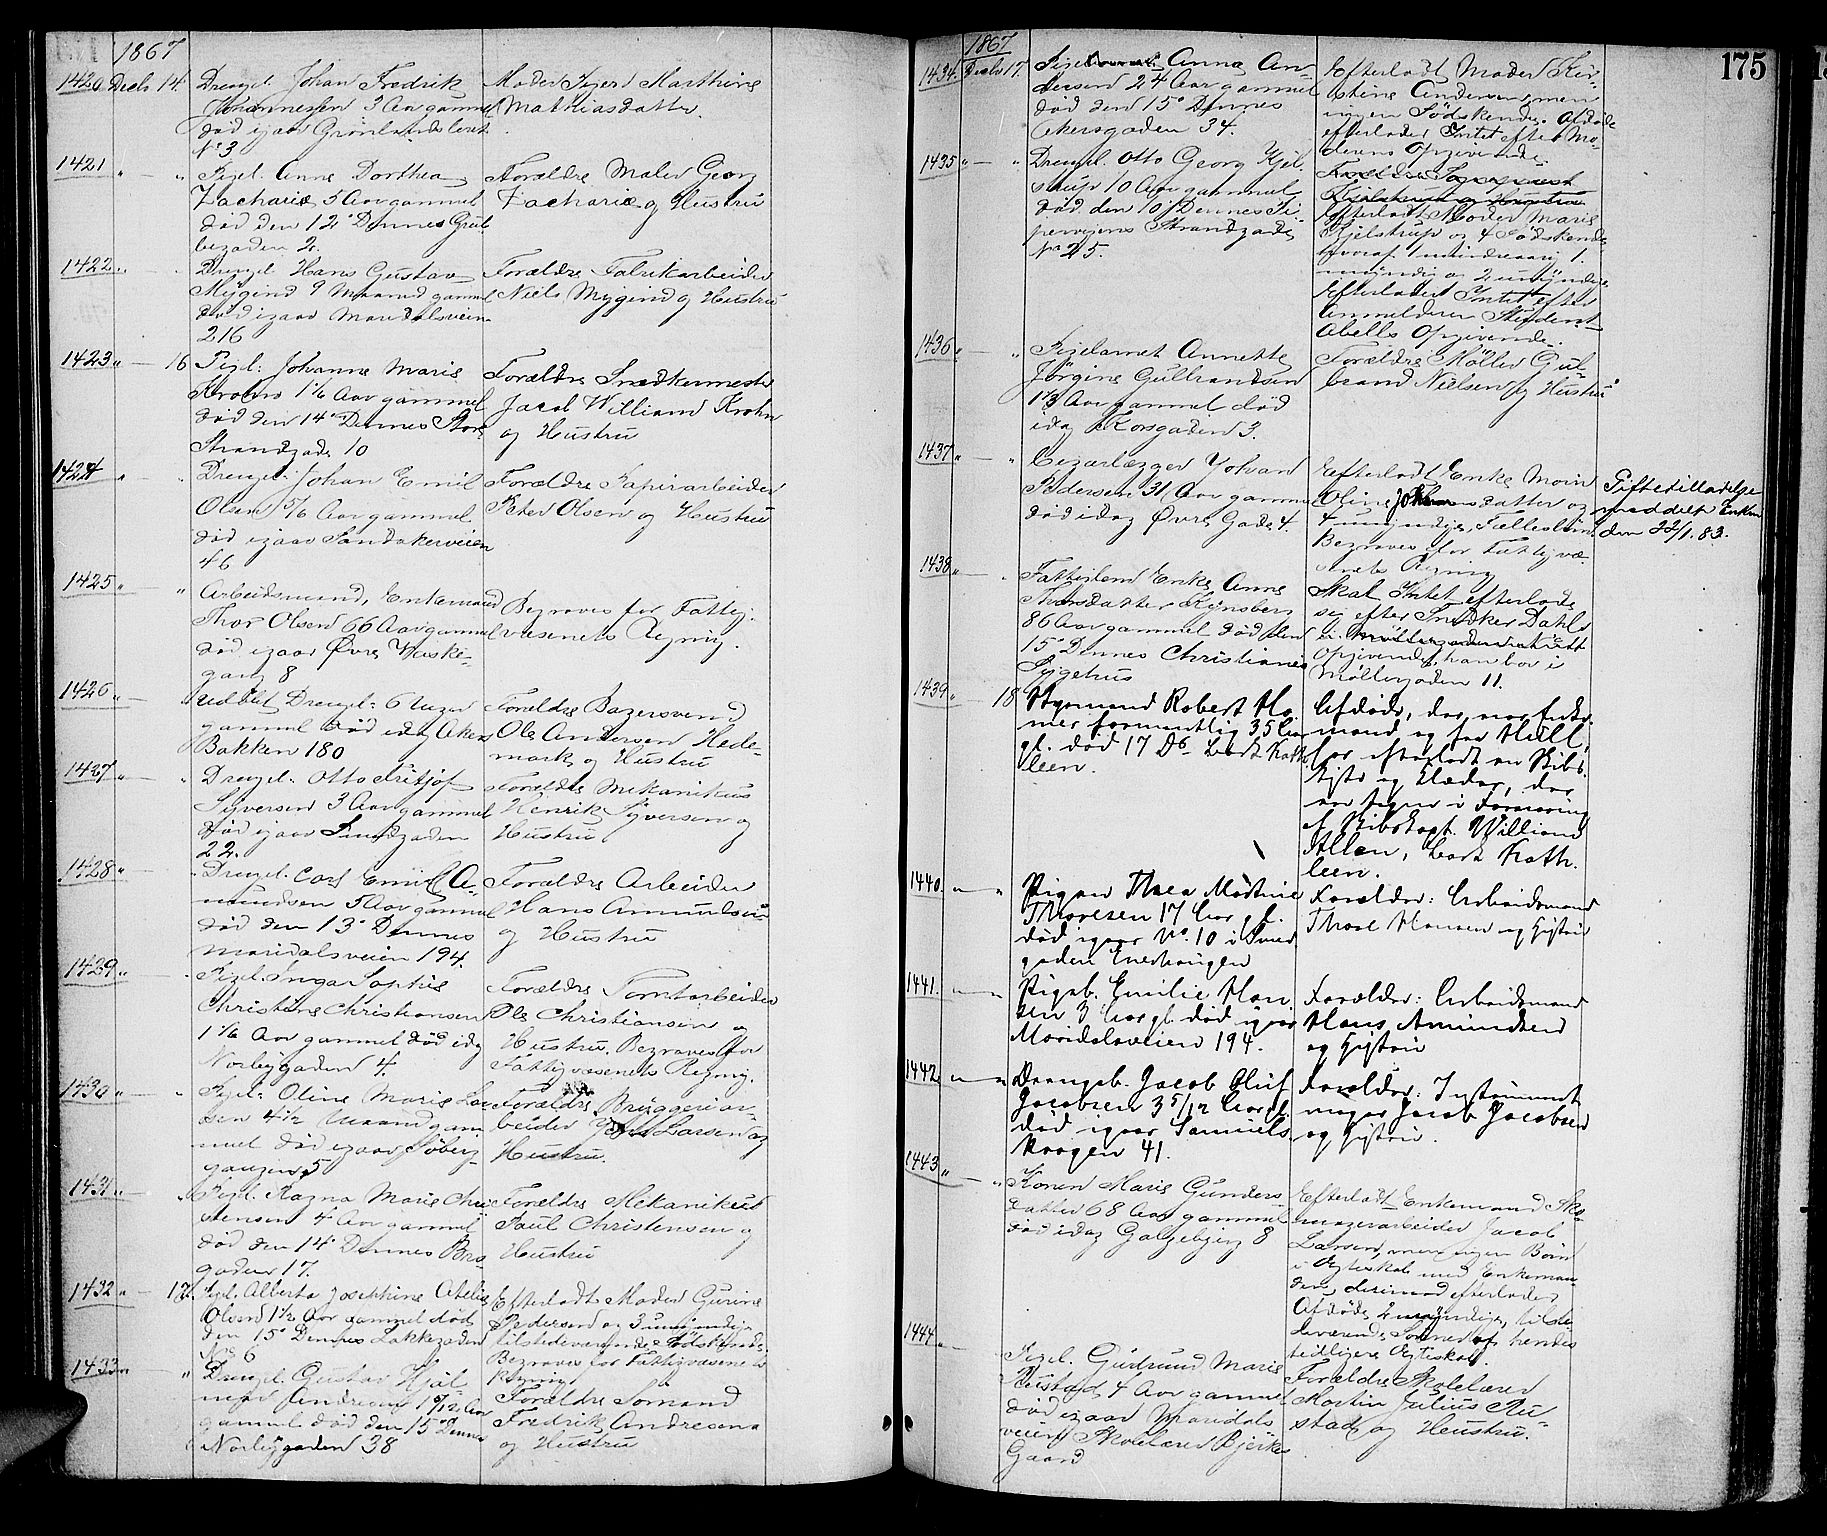 1867
1420 Decb 14. Drengeb. Johan Fredrik
Johannessen 3 Aar gammel
død igaar Grønlandsleret
No 3
Moder Pigen Marthine
Mathiasdatter.
1421 " — " Pigeb. Anne Dorthea
Zachariæ 5 Aar gammel
død den 12' Dennes Grüb
begaden 2.
Forældre Maler Georg
Zachariæ og Hustru
1422 " — " Drengeb. Hans Gustav
Mygind 9 Maaned gammel
død igaar Maridalsveien
216
Forældre Fabrikarbeider
Niels Mygind og Hustru
1423 " — 16 Pigeb: Johanne Marie
Krohn 1 1/6 Aar gammel
død den 14' Dennes Store
Strandgade 10
Forældre Snedkermester
Jacob William Krohn
og Hustru
1424 " " Drengeb: Johan Emil
Olsen 5/6 Aar gammel
død igaar Sandakerveien
46
Forældre Papirarbeider
Peter Olsen og Hustru
1425 " — " Arbeidsmand, Enkemand
Thor Olsen 66 Aar gammel
død igaar Øvre Waske-
gang 8
Begraves for Fattig-
væsenets Regning.
1426 " — Udøbt Drengeb: 6 Uger
gammel død idag Akers
Bakken 180
Forældre Bagersvend
Ole Andersen Hede-
mark og Hustru
1427 " — " Drengeb: Otto Fritjof
Syversen 3 Aar gammel
død igaar Lundgaden
22.
Forældre Mekanikus
Henrik Syversen og
Hustru
1428 " — " Drengeb. Carl Emil A-
mundsen 5 Aar gammel
død den 13' Dennes
Maridalsveien 194.
Forældre Arbeider
Hans Amundsen
og Hustru
1429 " — " Pigeb. Inga Sophie
Christine Christiansen
1 1/6 Aar gammel død idag
Norbygaden 4.
Forældre Tomtarbeider
Ole Christiansen og
Hustru. Begraves for
Fattigvæsenets Regning.
1430 " — " Pigeb: Oline Marie Lar
sen 4 1/2 Maaned gam
mel død igaar Søberg-
gangen 5
Forældre Bryggeriar-
beider Larsen og
Hustru.
1431 " — " Pigeb. Ragna Marie Chri
stensen 4 Aar gammel
død den 14' Dennes Bro
gaden 17.
Forældre Mekanikus
Paul Christensen og
Hustru
1432 " — 17 Pigeb. Alberta Josephine
Olsen 1 1/2 Aar gammel død
den 15' Dennes Lakkegaden
No 6
Efterladt Moder Gurine
Pedersen og 3 umyndige
tilstedeværende Sødskende
Begraves for Fattigvæsenets
Regning
1433 " " Drengeb. Gustav Hjal-
mar Andresen 1 9/12 Aar
gammel død den 15' Dennes
Norbygaden 38
Forældre Sømand
Fredrik Andresen
og Hustru
175
1867
1434. Decbr 17. Pigebarnet Anna An-
dersen 24 Aar gammel
død den 15' Dennes
Akersgaden 34.
Efterladt Moder Kir-
stine Andersen men
ingen Sødskende. Afdøde
efterlader Intet efter Mo-
derens Opgivende.
1435 " — " Drengeb. Otto Georg Kjel
strup 10 Aar gammel
død den 10' Dennes Pi-
pervigens Strandgade
No 25.
Forældre
Kjelstrup og Hustru
Efterladt Moder Marie
Kjelstrup og 4 Sødskende
hvoraf 1 mindreaarig 1
myndig og 2 umyndige
Efterlader Intet efter
Anmelderen Student
Abells Opgivende.
1436 " — " Pigebarnet Annette
Jørgine Gulbrandsen
1 1/3 Aar gammel død
idag Korsgaden 3.
Forældre Møller Gul-
brand Nielsen og Hustru
1437 " — " Cigarlægger Johan
Pedersen 31 Aar gammel
død idag Øvre Gade 4.
Efterladt Enke Maren
Oline Johansdatter og
4 umyndige Fællesbørn
Begraves for Fattigvæ-
senets Regning
Giftetilladelse
meddelt Enken
den 22/1.83.
1438 " — " Fattiglem Enke Anne
Thorsdatter Kynsberg
86 Aar gammel død den
15' Dennes Christiania
Sygehus
Skal Intet efterlade
sig efter Snedker Dahls
Opgivende, han bor i
Møllergaden 11.
1439 " 18 Styrmand Robert Ho
mer formentlig 35 Aar
gl. død 17 Ds Bark Kath
leen.
Afdøde, der var Enke-
mand og fra Hull,
har efterladt en Skibs-
kiste og Klæder, der
er tagen i Forvaring
af Skibskapt. William
Allen, Bark Kath-
leen.
1440. " " Pigen Thea Martine
Thoresen 17 Aar gl.
død igaar No. 10 i Smed
gaden Enerhaugen
Forældre: Arbeidsmand
Thore Hansen og Hustru
1441. " " Pigeb. Emilie Han
sen 3 Aar gl. død igaar
Maridalsveien 194.
Forældre: Arbeidsmand
Hans Amundsen
og Hustru
1442 " " Drengeb. Jacob Oluf
Jacobsen 3 5/12 Aar gl.
død igaar Samuels
krogen 41.
Forældre: Instrument
mager Jacob Jacobsen
og Hustru.
1443 " — " Konen Marie Gunders
datter 68 Aar gammel
død idag Galgebjerg 8
Efterladt Enkemand Sko-
magerarbeider Jacob
Larsen, men ingen Børn
i Ægteskab med Enkeman-
den, derimod efterlader
Afdøde 2 myndige, tilste-
deværende Sønner af hendes
tidligere Ægteskab.
1444 — Pigeb. Gudrund Marie
Rustad 4 Aar gammel
død igaar Maridals
veien Skolelærer Bjerke
Gaard
Forældre Skolelærer
Martin Julius Ru-
stad og Hustru.